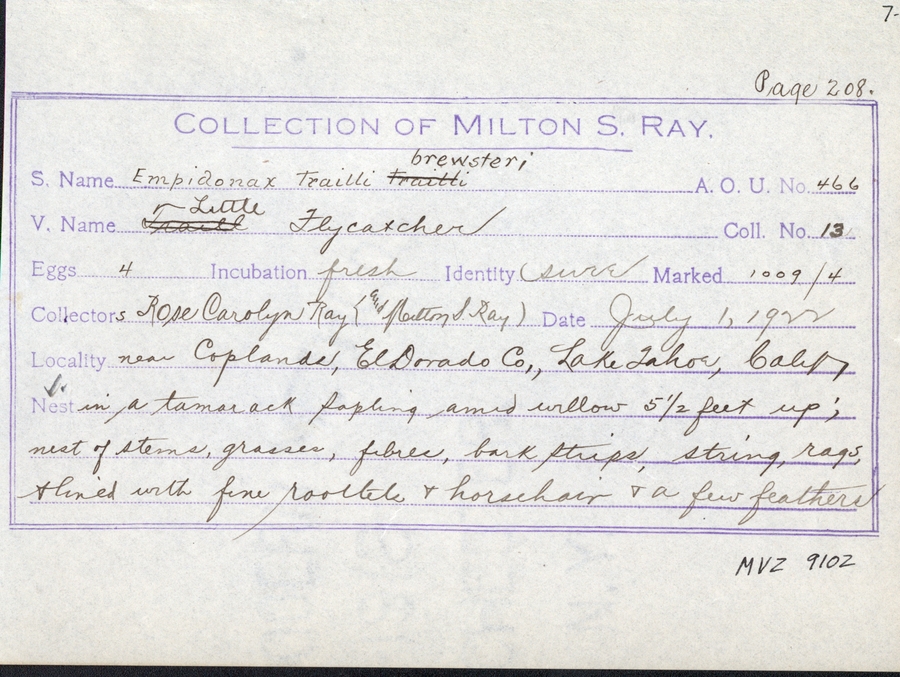 7-
Page 208.
COLLECTION OF MILTON S. RAY.
brewsteri
S. Name Empidonax Trailli Trailli A. O. U. No. 466
Little
V. Name Traill Flycatcher Coll. No. 13
Eggs 4 Incubation fresh Identity sure Marked 1009/4
Collectors Rose Carolyn Ray ( Milton S. Ray) Date July 1, 1922
Locality near Coplands, El Dorado Co., Lake Tahoe, Calif,
Nest in a tamarack sapling amid willow 5 1/2 feet up;
nest of stems, grasses, fibres, bark strips, string, rags,
& lined with fine rootlets & horsehair & a few feathers
MVZ 9102